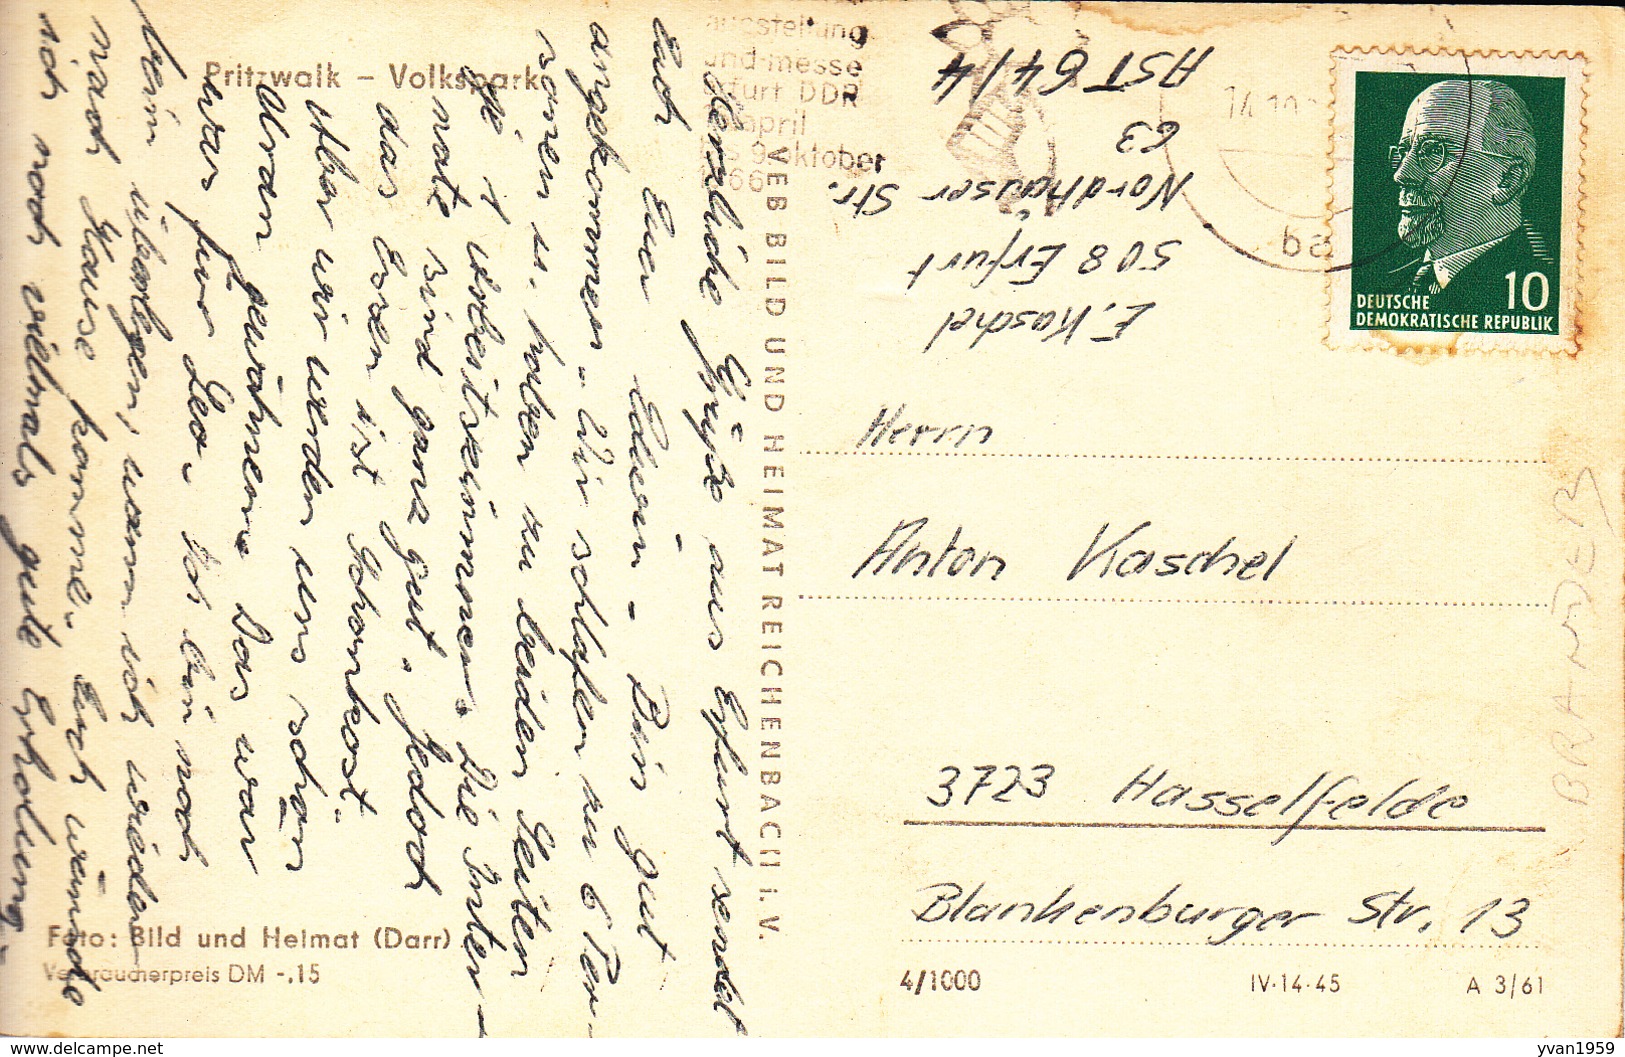 Pritzwalk – Volkspark
ausstellung
und-messe
erfurt DDR
april
9.oktober
66
14.10.
DEUTSCHE
DEMOKRATISCHE REPUBLIK
10
E. Kaschel
508 Erfurt
Nordhäuser Str.
63
AST 64/4
VEB BILD UND HEIMAT REICHENBACH i. V.
Herzliche Grüße aus Erfurt sendet
Euch Euer Edwin. Bin gut
angekommen. Wir schlafen zu 6 Per-
sonen u. haben zu beiden Seiten
je 1 Arbeitszimmer. Die Inter-
nate sind ganz gut. Jedoch
das Essen ist Schonkost.
Aber wir werden uns schon
dran gewöhnen. Das war
was für Leo. Ich bin noch
beim überlegen, wann ich wieder
nach Hause komme. Euch wünsche
ich noch vielmals gute Erholung.
Herrn
Anton Kaschel
3723 Hasselfelde
Blankenburger Str. 13
BRANDEB
Foto: Bild und Heimat (Darr)
Verbraucherpreis DM -,15
4/1000
IV-14-45
A 3/61
delcampe.net
yvan1959